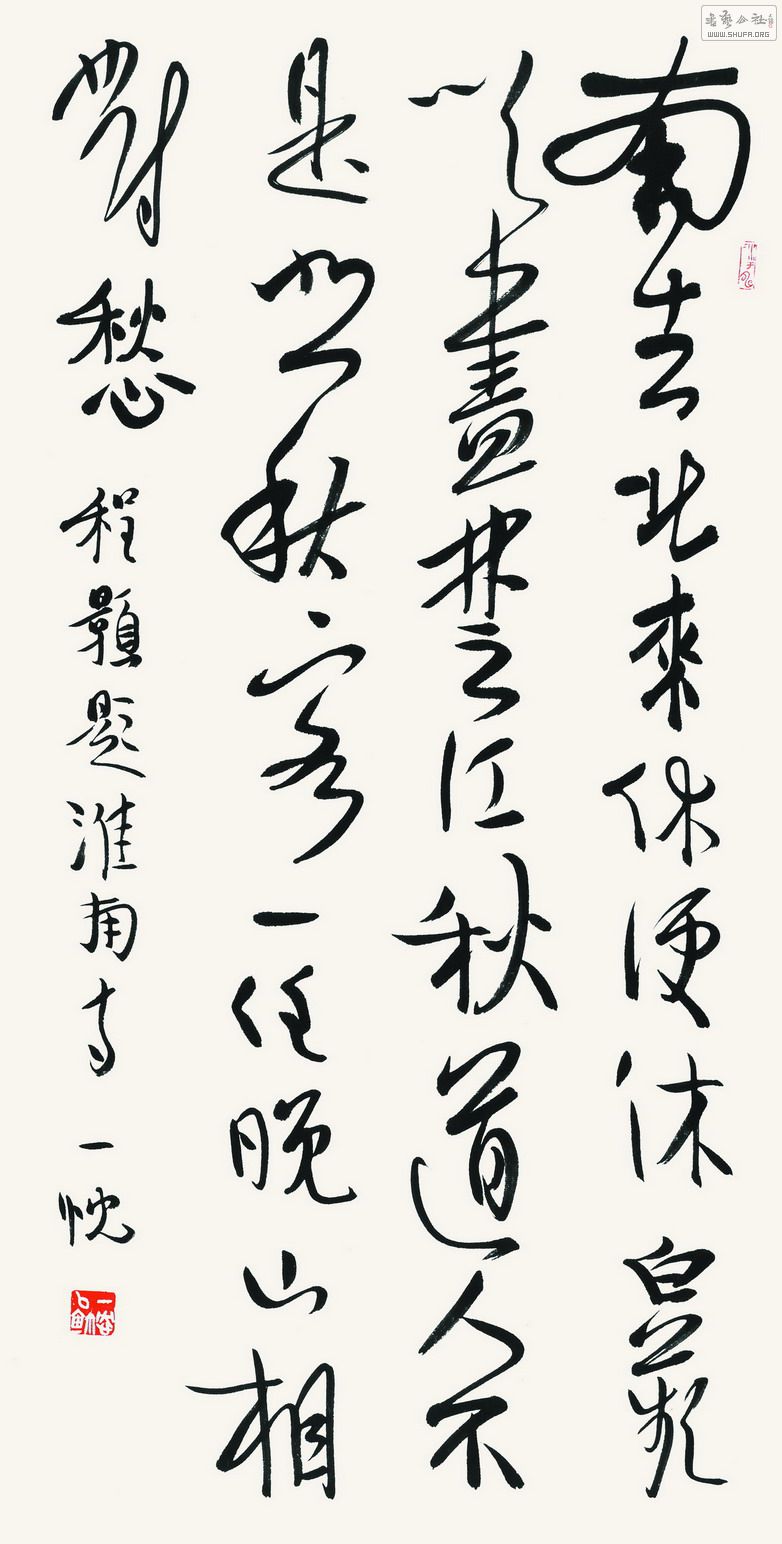 書藝公社
WWW.SHUFA.ORG
南去北來休便休白蘋
吹盡楚江秋道人不
是悲秋客一任晚山相
對愁 程顥題淮南寺